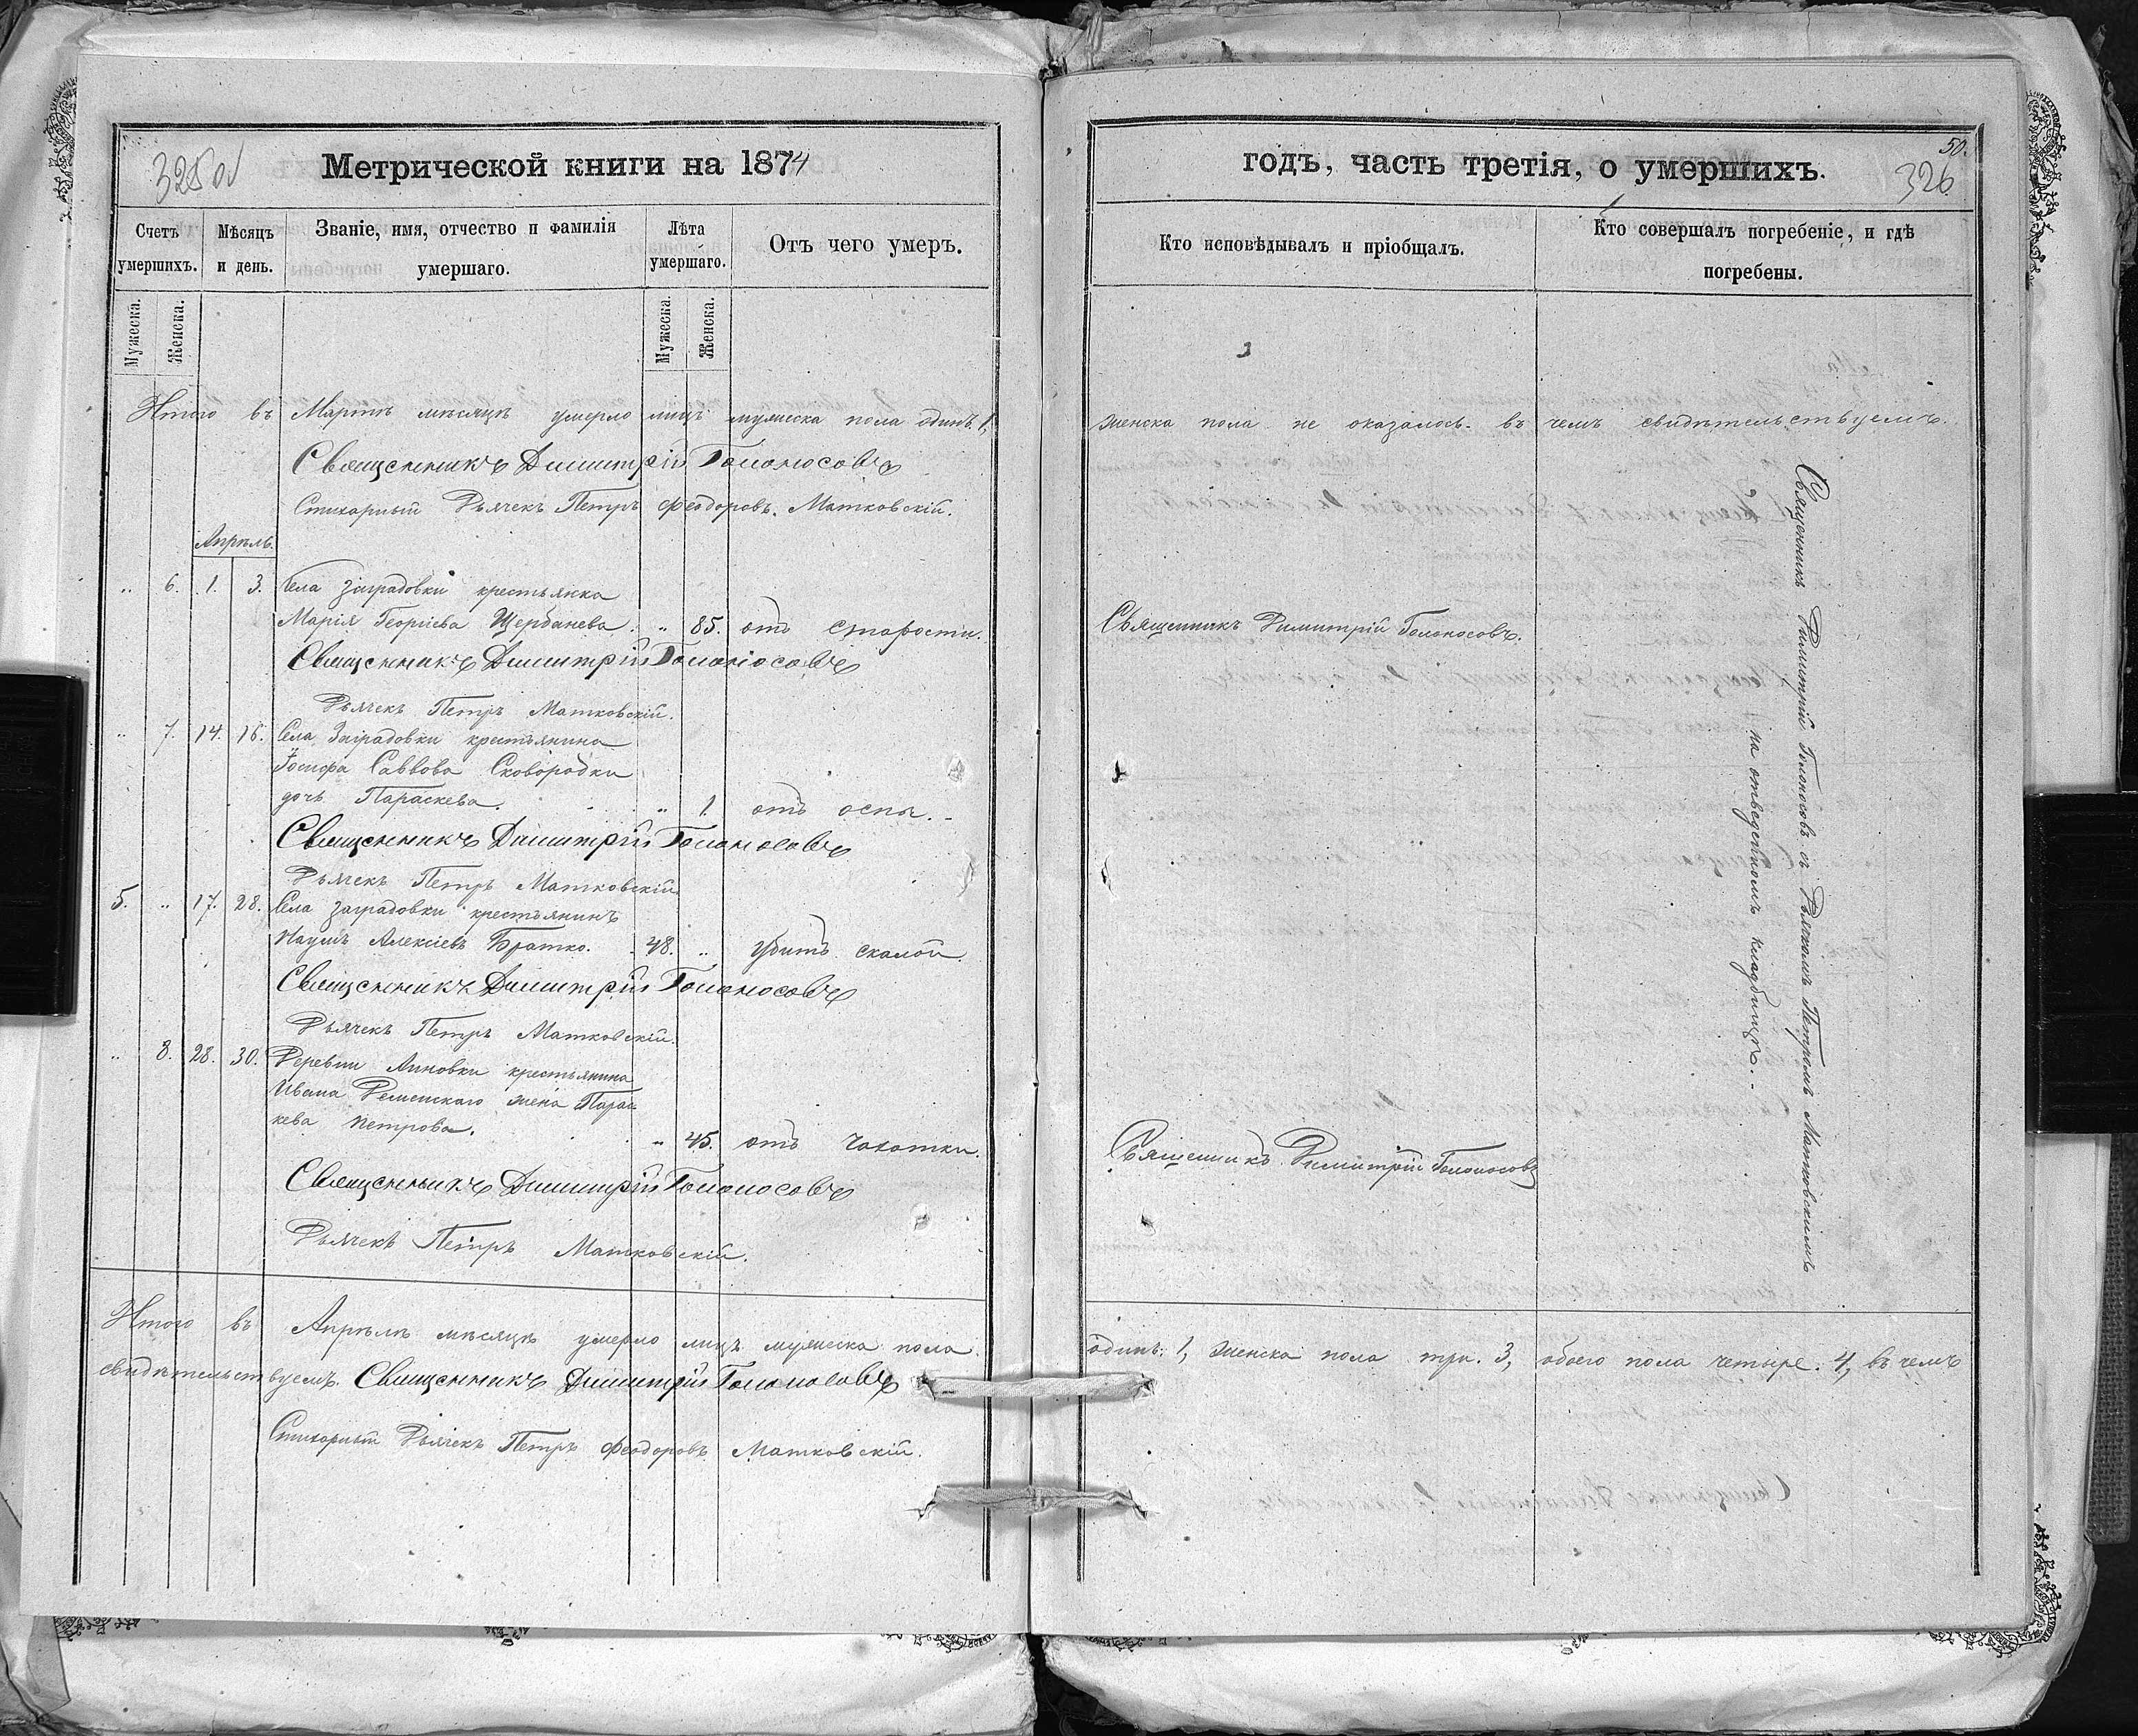 325об
Метрической книги на 1874
Счетъ умершихъ.
Мѣсяцъ и день.
Званіе, имя, отчество и фамилія
умершаго.
Лѣта умершаго.
Отъ чего умеръ.
Мужеска.
Женска.
Мужеска.
Женска.
Итого въ Мартѣ мѣсяцѣ умерло лицъ мужеска пола одинъ. 1,
Священникъ Димитрій Голоносовъ
Стихарный Дьячекъ Петръ Феодоровъ Матковскій.
Апрѣль.
„ 6. 1. 3. Села Заградовки крестьянка
Марія Георгіева Щербанева. „ 85. отъ старости.
Священникъ Димитрій Голоносовъ
Дьячекъ Петръ Матковскій.
„ 7. 14. 16. Села Заградовки крестьянина
Іосифа Саввова Сковородки
дочь Параскева. „ 1. отъ оспы.
Священникъ Димитрій Голоносовъ
Дьячекъ Петръ Матковскій
5. „ 17. 28. Села Заградовки крестьянинъ
Наумъ Алексіевъ Братко. 48. „ убитъ скалой.
Священникъ Димитрій Голоносовъ
Дьячекъ Петръ Матковскій.
„ 8. 28. 30. Деревни Анновки крестьянина
Ивана жена Парас
кева Петрова. „ 45. отъ чахотки.
Священникъ Димитрій Голоносовъ
Дьячекъ Петръ Матковскій.
Итого въ Апрѣлѣ мѣсяцѣ умерло лицъ мужеска пола
свидѣтельствуемъ. Священникъ Димитрій Голоносовъ
Стихарный Дьячекъ Петръ Феодоровъ Матковскій.
50.
326
годъ, часть третія, о умершихъ.
Кто исповѣдывалъ и пріобщалъ.
Кто совершалъ погребеніе, и гдѣ
погребены.
женска пола не оказалось. въ чемъ свидѣтельствуемъ.
Священникъ Димитрій Голоносовъ.
Священникъ Димитрій Голоносовъ
Священникъ Димитрій Голоносовъ съ Дьячкомъ Петромъ Матковскимъ
на отведенномъ кладбищѣ.
одинъ: 1, женска пола три. 3, обоего пола четыре. 4, въ чемъ